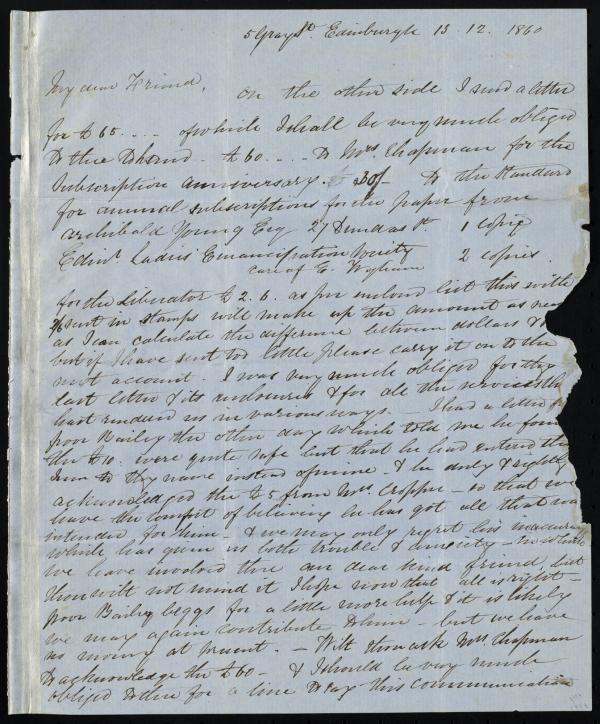 5 Gray St. Edinburgh 13. 12. 1860
My dear Friend, On the other side I send a letter
for £65 .... of which I shall be very much obliged
to thee to hand. £60 .... to Mrs. Chapman for the
Subscription anniversary. £ 30/- to the Standard
for annual subscriptions for the paper from
Archibald Young Esq 27 Dundas St. 1 copy
Edinr. Ladies Emancipation Society 2 copies.
care of G. Wigham
for the Liberator £2. 6. as per enclosed list this with
2/6 sent in stamps will make up the amount as near
as I can calculate the difference between dollars &
but if I have sent too little please carry it on to the
next account. I was very much obliged for thy
last letter & its enclosures & for all the services thou
hast rendered us in various ways. — I had a letter
poor Bailey the other day which told me he found
the £10. were quite safe but that he had entered the
sum to thy name instead of mine - & he duly & rightly
acknowledged the £5 from Mrs. Cropper — so that we
have the comfort of believing he has got all that was
intended for him - & we may only regret his inaccuracy
which has given us both trouble & anxiety —
we have involved thee in dear kind friend, but
thou wilt not mind it I hope now that all is right —
poor Bailey beggs for a little more help & it is likely
we may again contribute to him — but we have
no money at present. — Wilt thou ask Mrs. Chapman
to acknowledge the £60 — & I should be very much
obliged to thee for a line to say this communication